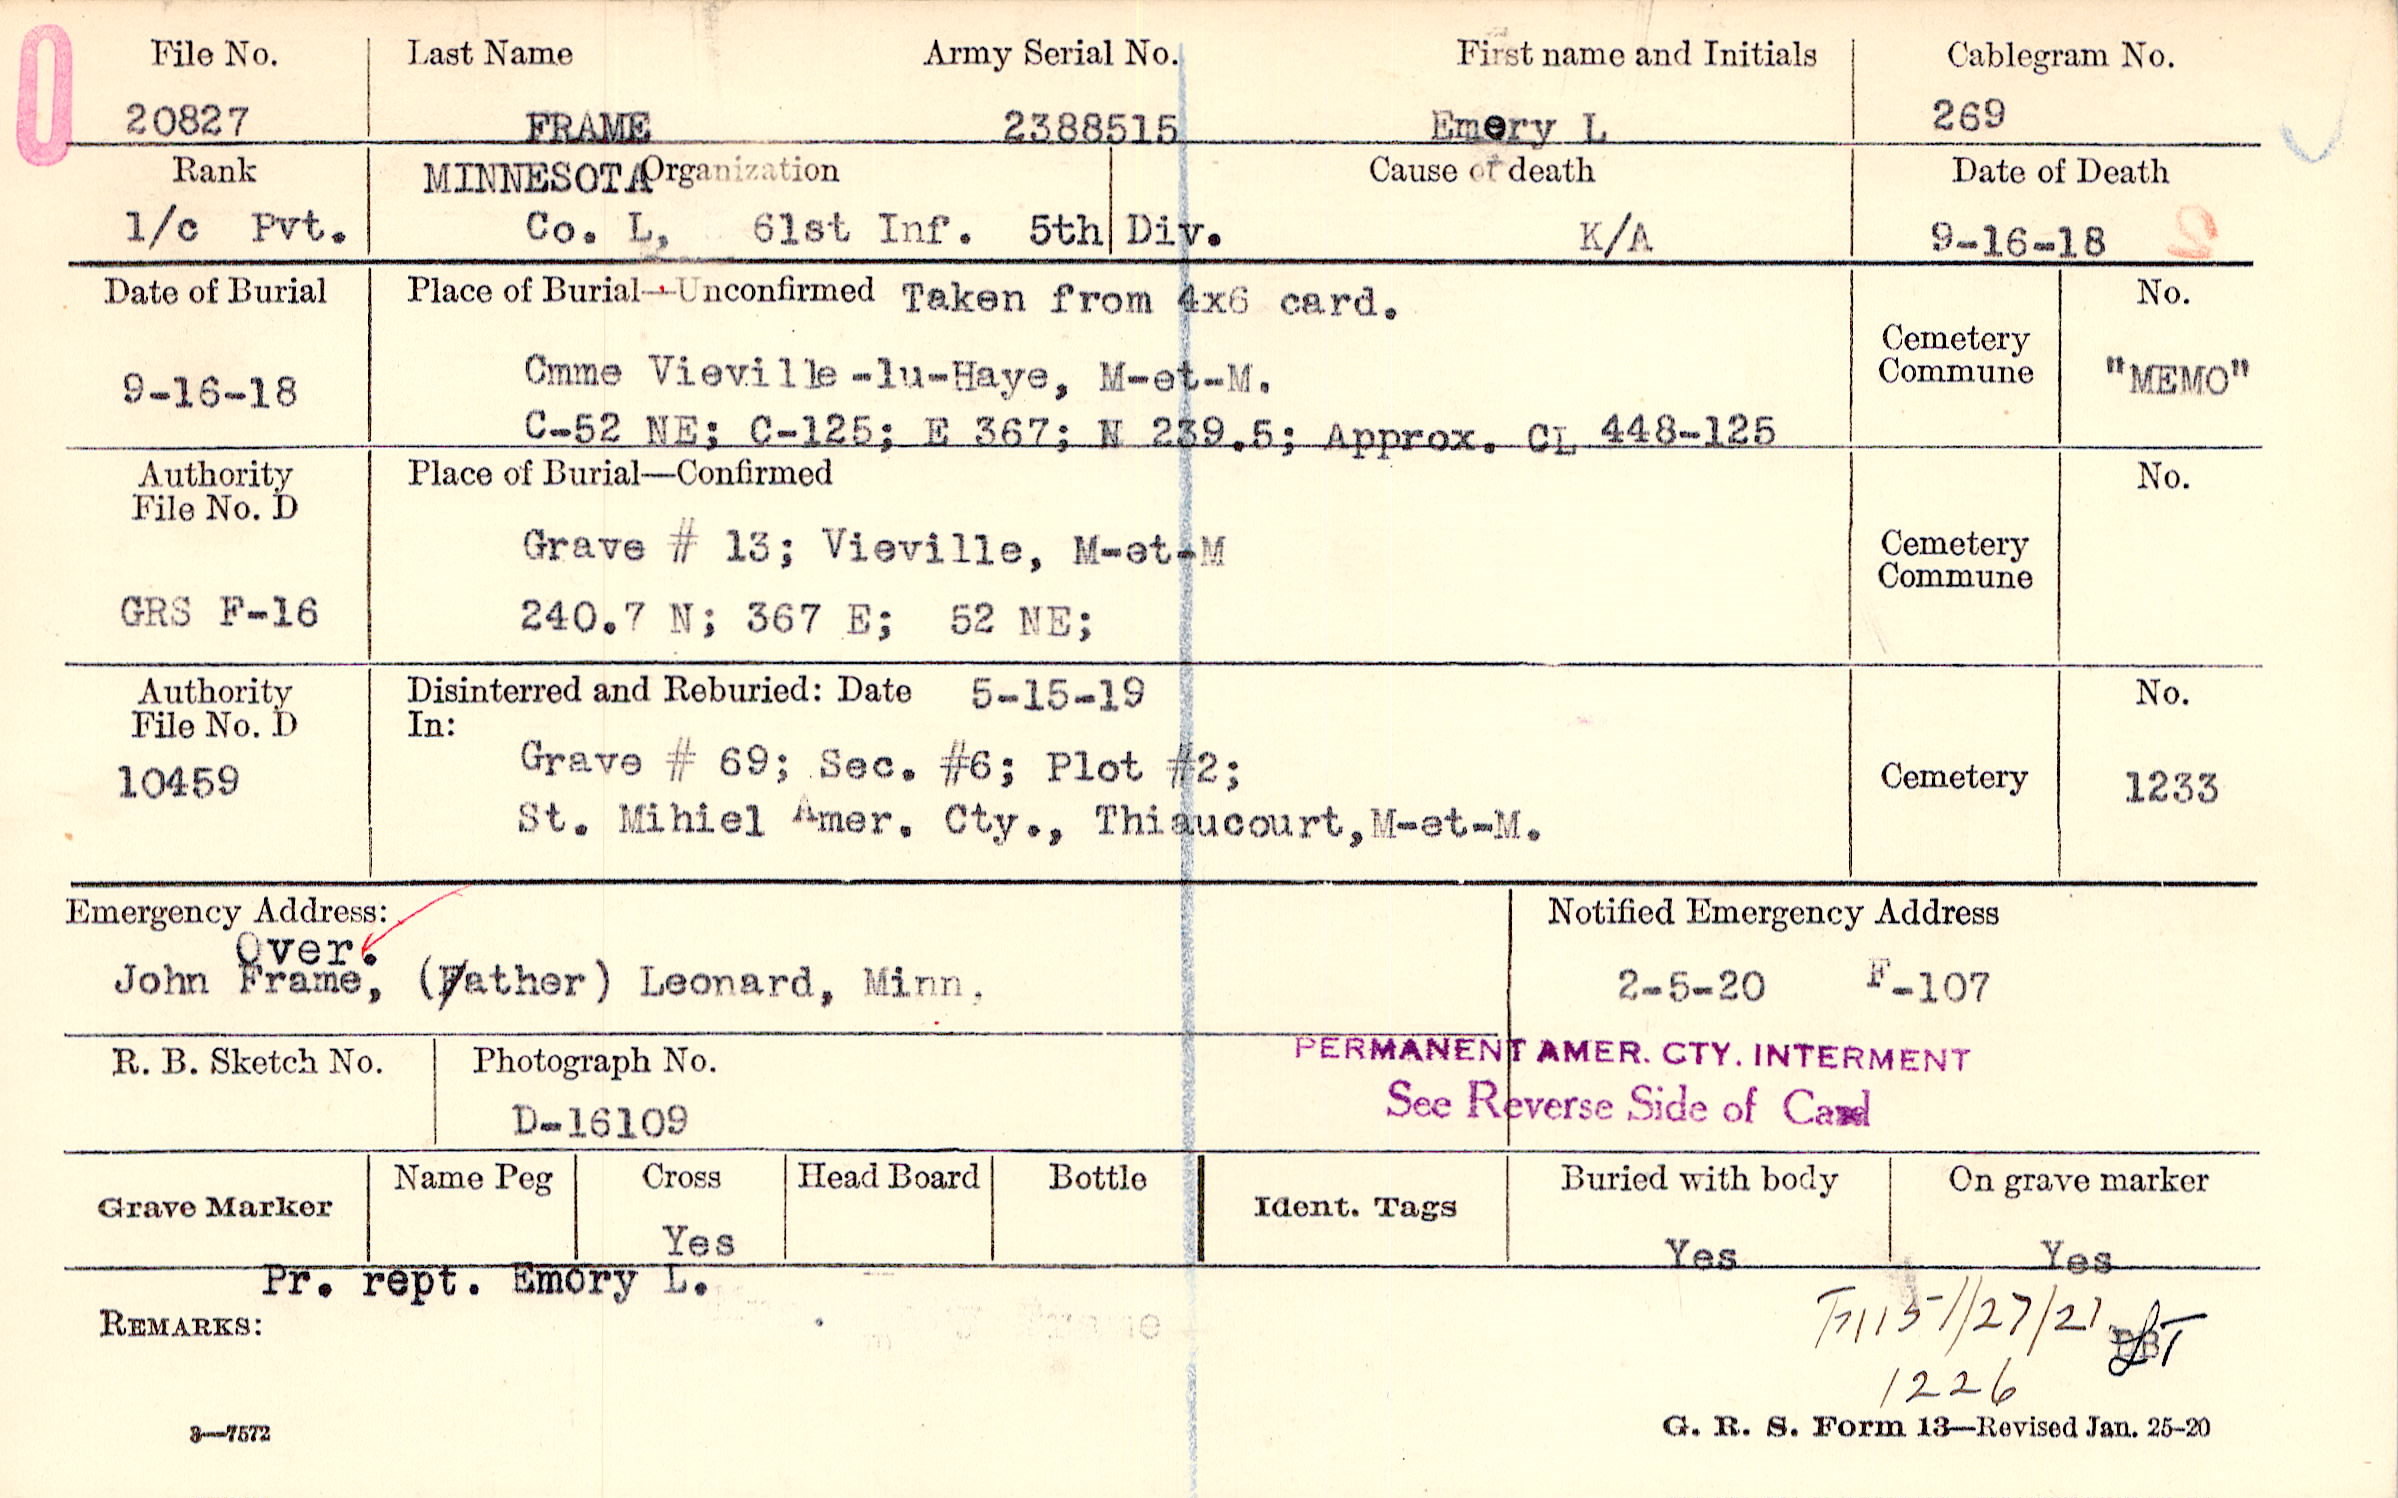 File No. Last Name Army Serial No. First name and Initials Cablegram No.
20827 FRAME 2388515 Emery L 269
Rank MINNESOTA Organization Cause of death Date of Death
1/c Pvt. Co. L, 61st Inf. 5th Div. K/A 9-16-18
2
Date of Burial Place of Burial—Unconfirmed Taken from 4x6 card. No.
Cemetery
Commune
9-16-18 Cmme Vieville-lu-Haye, M-et-M. "MEMO"
C-52 NE; C-125; E 367; N 239.5; Approx. CL 448-125
Authority Place of Burial—Confirmed No.
File No. D
Grave # 13; Vieville, M-et-M Cemetery
Commune
GRS F-16 240.7 N; 367 E; 52 NE;
Authority Disinterred and Reburied: Date 5-15-19 No.
File No. D In:
10459 Grave # 69; Sec. #6; Plot #2; Cemetery 1233
St. Mihiel Amer. Cty., Thiaucourt, M-et-M.
Emergency Address: Notified Emergency Address
Over.
John Frame, (Father) Leonard, Minn. 2-5-20 F-107
R. B. Sketch No. Photograph No. PERMANENT AMER. CTY. INTERMENT
D-16109 See Reverse Side of Card
Grave Marker Name Peg Cross Head Board Bottle Ident. Tags Buried with body On grave marker
Yes Yes Yes
Pr. rept. Emory L.
REMARKS:
1/27/21
1226
3—7572 G. R. S. Form 13—Revised Jan. 25-20